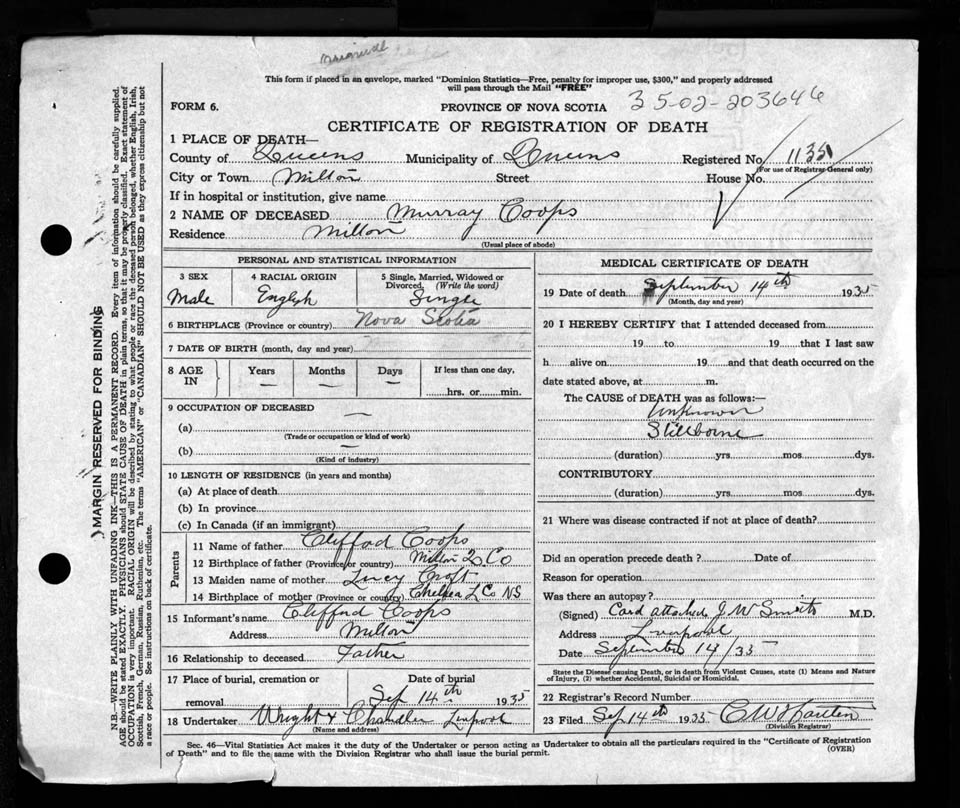 This form if placed in an envelope, marked "Dominion Statistics—Free, penalty for improper use, $300," and properly addressed
will pass through the Mail "FREE"
FORM 6.
PROVINCE OF NOVA SCOTIA
35-02-203646
CERTIFICATE OF REGISTRATION OF DEATH
1 PLACE OF DEATH—
County of Queens Municipality of Queens Registered No. 1135
(For use of Registrar-General only)
City or Town Milton Street House No.
If in hospital or institution, give name
2 NAME OF DECEASED Murray Coops
Residence Milton
(Usual place of abode)
PERSONAL AND STATISTICAL INFORMATION
3 SEX 4 RACIAL ORIGIN 5 Single, Married, Widowed or
Divorced. (Write the word)
Male English Single
6 BIRTHPLACE (Province or country) Nova Scotia
7 DATE OF BIRTH (month, day and year)
8 AGE IN Years Months Days If less than one day,
— — — hrs. or min.
9 OCCUPATION OF DECEASED —
(a)
(Trade or occupation or kind of work)
(b) —
(Kind of industry)
10 LENGTH OF RESIDENCE (in years and months)
(a) At place of death
(b) In province
(c) In Canada (if an immigrant)
Parents
11 Name of father Clifford Coops
12 Birthplace of father (Province or country) Milton Q Co
13 Maiden name of mother Lucy Croft
14 Birthplace of mother (Province or country) Chelsea L Co NS
15 Informant's name Clifford Coops
Address Milton
16 Relationship to deceased Father
17 Place of burial, cremation or Date of burial
removal Sep 14th 1935
18 Undertaker Wright & Chandler Liverpool
(Name and address)
MEDICAL CERTIFICATE OF DEATH
19 Date of death September 14th 1935
(Month, day and year)
20 I HEREBY CERTIFY that I attended deceased from
19 to 19 that I last saw
h alive on 19 and that death occurred on the
date stated above, at m.
The CAUSE OF DEATH was as follows:—
Unknown
Stillborne
(duration) yrs. mos. dys.
CONTRIBUTORY
(duration) yrs. mos. dys.
21 Where was disease contracted if not at place of death?
Did an operation precede death? Date of
Reason for operation
Was there an autopsy?
(Signed) Card attached J W Smith M.D.
Address Liverpool
Date September 14/35
State the Disease causing Death, or in death from Violent Causes, state (1) Means and Nature
of Injury, (2) whether Accidental, Suicidal or Homicidal.
22 Registrar's Record Number
23 Filed Sep 14th 1935 C W
(Division Registrar)
Sec. 46—Vital Statistics Act makes it the duty of the Undertaker or person acting as Undertaker to obtain all the particulars required in the "Certificate of Registration
of Death" and to file the same with the Division Registrar who shall issue the burial permit. (OVER)
MARGIN RESERVED FOR BINDING
N.B.—WRITE PLAINLY WITH UNFADING INK—THIS IS A PERMANENT RECORD. Every item of information should be carefully supplied.
AGE should be stated EXACTLY. PHYSICIANS should STATE CAUSE OF DEATH in plain terms, so that it may be properly classified. Exact statement of
OCCUPATION is very important. RACIAL ORIGIN will be described by stating to what people or race the deceased person belonged, whether English, Irish,
Scottish, French, German, Russian, Ruthenian, etc. The terms "AMERICAN" or "CANADIAN" SHOULD NOT BE USED as they express citizenship but not
a race or people. See instructions on back of certificate.